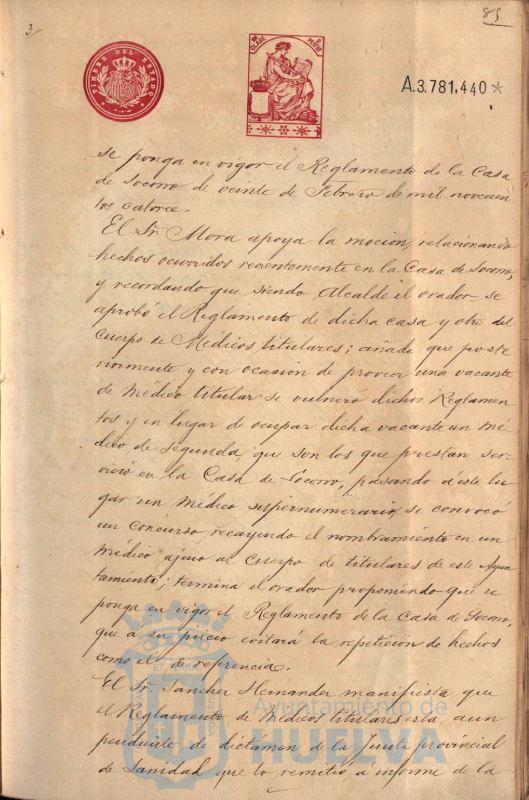 3
85
TIMBRE DEL ESTADO
A.3.781.440*
se ponga en vigor el Reglamento de la Casa
de Socorro de veinte de Febrero de mil novecien
tos catorce.
El Sr. Mora apoya la moción, relacionando
hechos ocurridos recientemente en la Casa de Socorro,
y recordando que siendo Alcalde el orador se
aprobó el Reglamento de dicha casa y otro del
Cuerpo de Médicos titulares; añade que poste
riormente y con ocasion de proveer una vacante
de Médico titular se vulneró dichos Reglamen
tos y en lugar de ocupar dicha vacante un mé
dico de segunda que son los que prestan ser
vicio en la Casa de Socorro, pasando á este lu
gar un médico supernumerario, se convocó
un concurso, recayendo el nombramiento en un
Médico ajeno al Cuerpo de titulares de este Ayun
tamiento; termina el orador proponiendo que se
ponga en vigor el Reglamento de la Casa de Socorro,
que á su juicio evitará la repeticion de hechos
como el de referencia.
El Sr. Sanchez Hernandez manifiesta que
el Reglamento de Médicos titulares está aun
pendiente de dictamen de la Junta provincial
de Sanidad que lo remitió a informe de la
Ayuntamiento de
HUELVA